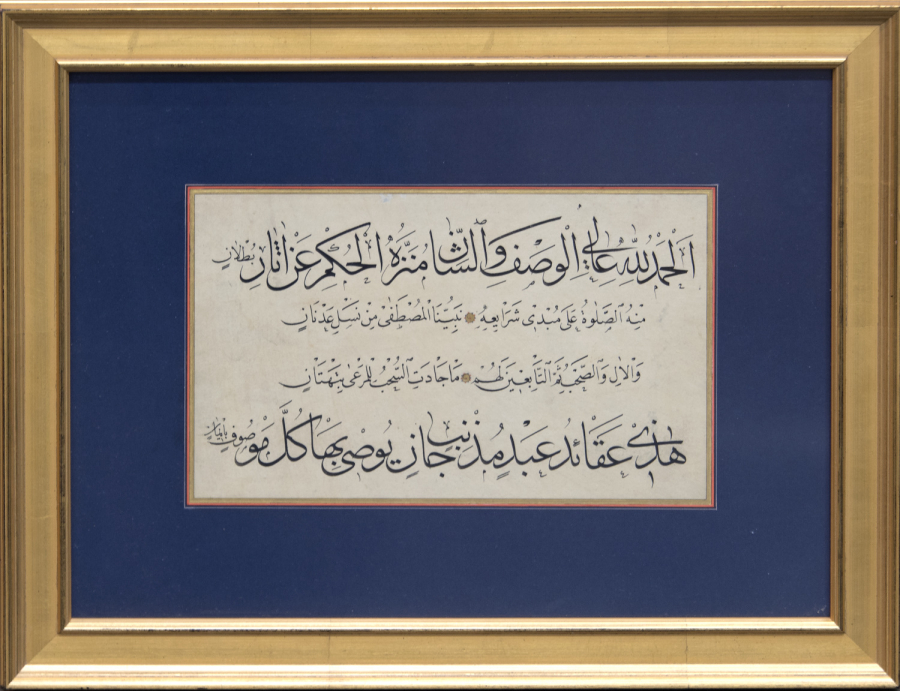 الحمد لله عالي الوصف والشان منزه الحكم عن اثار بطلان
منه الصلوة على مبدى شرايعه نبينا المصطفى من نسل عدنان
والال والصحب ثم التابعين لهم ما جادت السحب للرعى بتهتان
هذى عقائد عبد مذنب جان يوصى بها كل موصوف بايمان